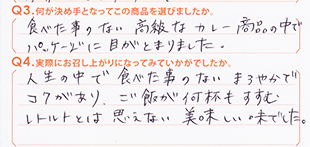 Q3.何が決め手となってこの商品を選びましたか。
食べた事のない高級なカレー商品の中で
パッケージに目がとまりました。
Q4.実際にお召し上がりになってみていかがでしたか。
人生の中で食べた事のないまろやかで
コクがあり、ご飯が何杯もすすむ
レトルトとは思えない美味しい味でした。